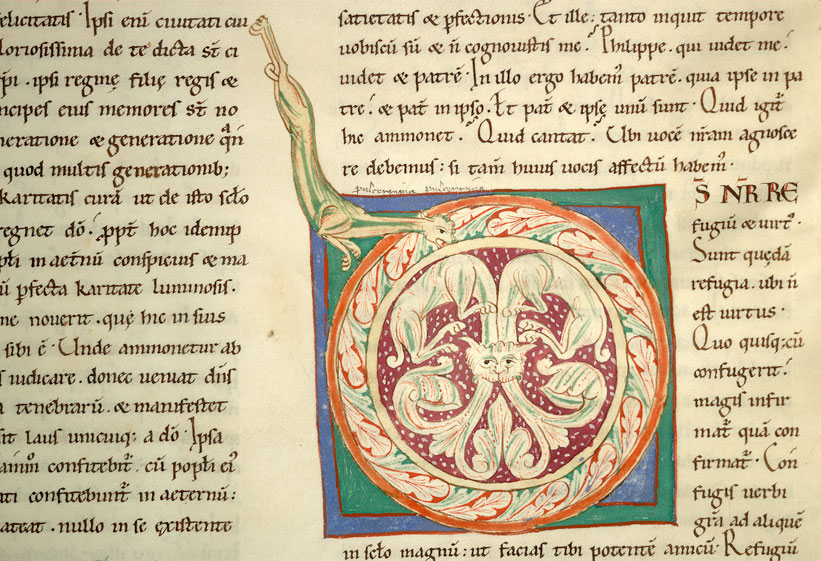 felicitatis. Ipsi eni ciuitati cui
loriosissima de te dicta st ci
xpi. ipsi reginę filię regis &
ncipes eius memores st no
neratione & generatione qm
quod multis generationib;
karitatis cura ut de isto sclo
regnet do. ppt hoc idem
ppli in aetnu conspicuus & ma
ū pfecta karitate luminosis.
ne nouerit. quę hic in suis
sibi ē. Unde ammonetur ab
iudicare. donec ueniat dns
tenebraru. & manifestet
sit laus unicuiq; a do. Ipsa
confitebit. cū popli ei
ati confitebunt in aeternū:
ateat. nullo in se existente
satietatis & pfectionis. Et ille: tanto inquit tempore
uobiscū sū & n cognouistis me. Philippe. qui uidet me.
uidet & patrē. In illo ergo habem patrē. quia ipse in pa
tre. & pat in ipso. Et pat & ipse unū sunt. Quid igit
hic ammonet. Quid cantat. Ubi uocē nram agnosce
re debemus: si tam huius uocis affectū habem.
D̄S NR̄ RE
fugiū & uirt.
Sunt quędā
refugia. ubi n
est uirtus.
Quo quisq; cū
confugerit.
magis infir
mat quā con
firmat. Con
fugis uerbi
gra ad aliquē
in sclo magnū: ut facias tibi potentē amicū. Refugiū